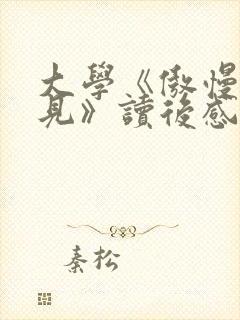 大學《傲慢
見》讀後感
秦松